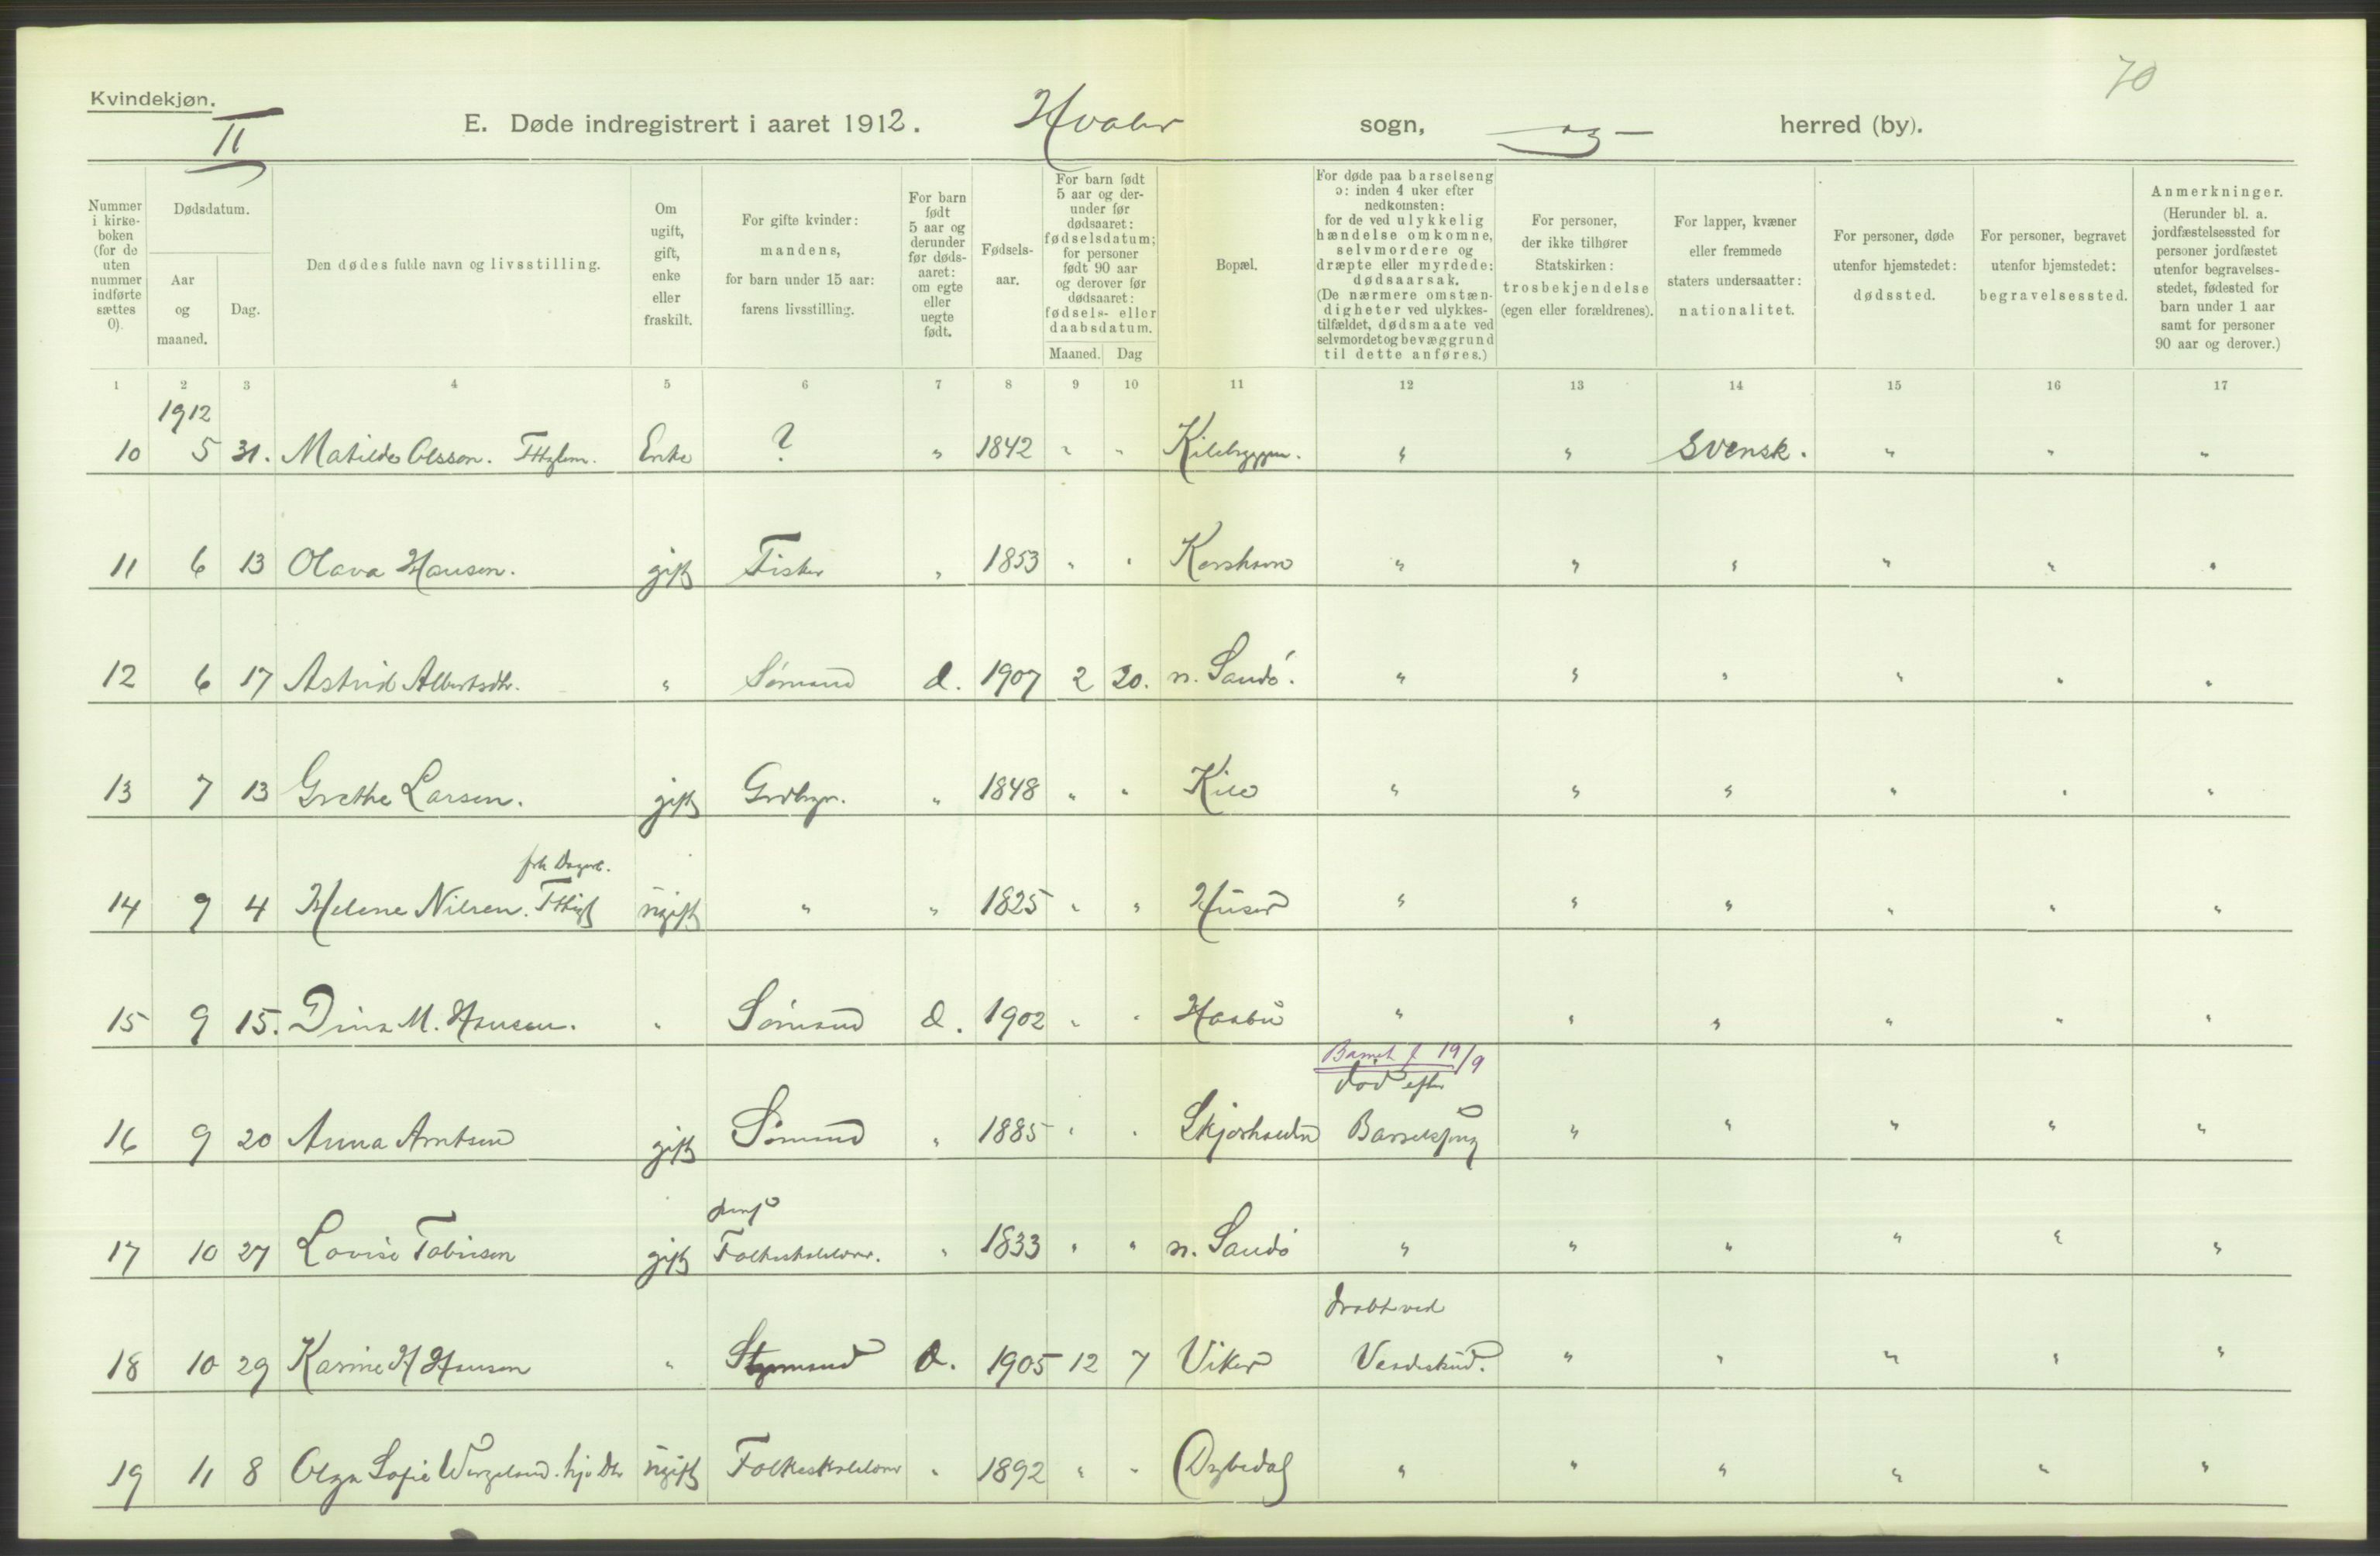 70
Kvindekjøn.
II
E. Døde indregistrert i aaret 1912. Hvaler sogn, herred (by).
Nummer i kirkeboken (for de uten nummer indførte sættes 0).
Dødsdatum.
Aar og maaned.
Dag.
Den dødes fulde navn og livsstilling.
Om ugift, gift, enke eller fraskilt.
For gifte kvinder: mandens, for barn under 15 aar: farens livsstilling.
For barn født 5 aar og derunder før dødsaaret: om egte eller uegte født.
Fødselsaar.
For barn født 5 aar og derunder før dødsaaret: fødselsdatum; for personer født 90 aar og derover før dødsaaret: fødsels- eller daabsdatum.
Maaned. Dag
Bopæl.
For døde paa barselseng ɔ: inden 4 uker efter nedkomsten: for de ved ulykkelig hændelse omkomne, selvmordere og dræpte eller myrdede: dødsaarsak. (De nærmere omstændigheter ved ulykkestilfældet, dødsmaate ved selvmordet og bevæggrund til dette anføres.)
For personer, der ikke tilhører Statskirken: trosbekjendelse (egen eller forældrenes).
For lapper, kvæner eller fremmede staters undersaatter: nationalitet.
For personer, døde utenfor hjemstedet: dødssted.
For personer, begravet utenfor hjemstedet: begravelsessted.
Anmerkninger. (Herunder bl. a. jordfæstelsessted for personer jordfæstet utenfor begravelsesstedet, fødested for barn under 1 aar samt for personer 90 aar og derover.)
1 2 3 4 5 6 7 8 9 10 11 12 13 14 15 16 17
1912
10 5 31. Matilde Olsson. Enke ? " 1842 " " " " Svensk. " " "
11 6 13 Olava Hansen. gift Fisker " 1853 " " Korshavn " " " " " "
12 6 17 Astrid Albertsdtr. " Sömand d. 1907 2 20. n. Sandö. " " " " " "
13 7 13 Grethe Larsen. gift Grdbgr. " 1848 " " Kile " " " " " "
14 9 4 Helene Nilsen. ugift " " 1825 " " Huser " " " " " "
15 9 15. Dina M. Hansen. " Sömand d. 1902 " " Haabu " " " " " "
Barnet f. 19/9
död efter
16 9 20 Anna Arntsen gift Sömand " 1885 " " Skjærhalden " " " " "
17 10 27 Lovise Tobiesen gift Folkeskolelærer. " 1833 " " n. Sandö " " " " " "
dræbt ved
18 10 29 Karine H Hansen " d. 1905 12 7 Viker Vaadeskud. " " " " "
19 11 8 Olga Sofie Wergeland. hj. dtr ugift Folkeskolelærer " 1892 " " Dybedal " " " " " "